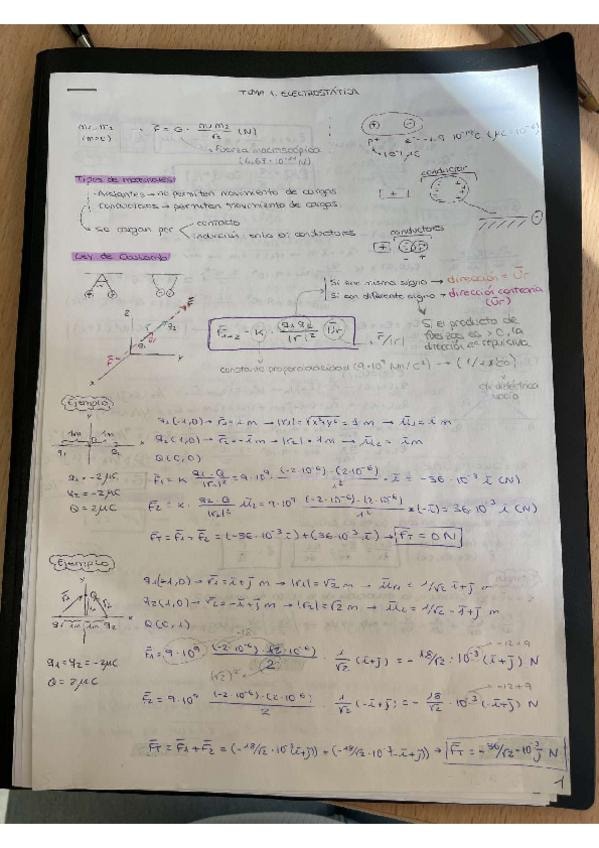 TEMA 1. ELECTROSTÁTICA
F̄ = G · m₁m₂/r² (N)
Fuerza macroscópica
Tipos de materiales:
Aislantes → no permiten movimiento de cargas
Conductores → permiten movimiento de cargas
Se cargan por contacto
inducción: entre conductores
conductor
conductores
Ley de Coulomb
Si son mismo signo → dirección = ūr
Si son diferente signo → dirección contraria (ūr)
F̄₁₋₂ = K · q₁q₂/|r|² ūr
r̄/|r|
Si el producto de
fuerzas es > 0, la
dirección es repulsiva
constante proporcionalidad (9·10⁹ Nm/C²)
cte dieléctrica
vacío
Ejemplo
q₁(-1,0) → r̄₁ = ī m → |r₁| = √x²+y² = 1 m → ū₁ = ī m
q₂(1,0) → r̄₂ = -ī m → |r₂| = 1 m → ū₂ = ī m
Q(0,0)
q₁ = -2μC
q₂ = -2μC
Q = 2μC
F̄₁ = K q₁·Q/|r₁|² = 9·10⁹ · (-2·10⁻⁶)·(2·10⁻⁶)/1² · ī = -36·10⁻³ ī (N)
F̄₂ = K · q₂·Q/|r₂|² ū₂ = 9·10⁹ (-2·10⁻⁶)·(2·10⁻⁶)/1² · (-ī) = 36·10⁻³ ī (N)
F̄T = F̄₁ + F̄₂ = (-36·10⁻³ ī) + (36·10⁻³ ī) → F̄T = 0 N
Ejemplo
q₁(-1,0) → r̄₁ = ī+j̄ m → |r₁| = √2 m → ūr₁ = 1/√2 ī+j̄
q₂(1,0) → r̄₂ = -ī+j̄ m → |r₂| = √2 m → ū₂ = 1/√2 -ī+j̄ m
Q(0,1)
q₁ = q₂ = -2μC
Q = 2μC
-18
F̄₁ = 9·10⁹ (-2·10⁻⁶)·(2·10⁻⁶)/2 · 1/√2 (ī+j̄) = -18/√2 · 10⁻³ (ī+j̄) N
(√2)²
-12+9
F̄₂ = 9·10⁹ (-2·10⁻⁶)·(2·10⁻⁶)/2 · 1/√2 (-ī+j̄) = -18/√2 · 10⁻³ (-ī+j̄) N
-12+9
F̄T = F̄₁ + F̄₂ = (-18/√2 · 10⁻³(ī+j̄)) + (-18/√2 · 10⁻³(-ī+j̄)) → F̄T = -36/√2 · 10⁻³ j̄ N
1